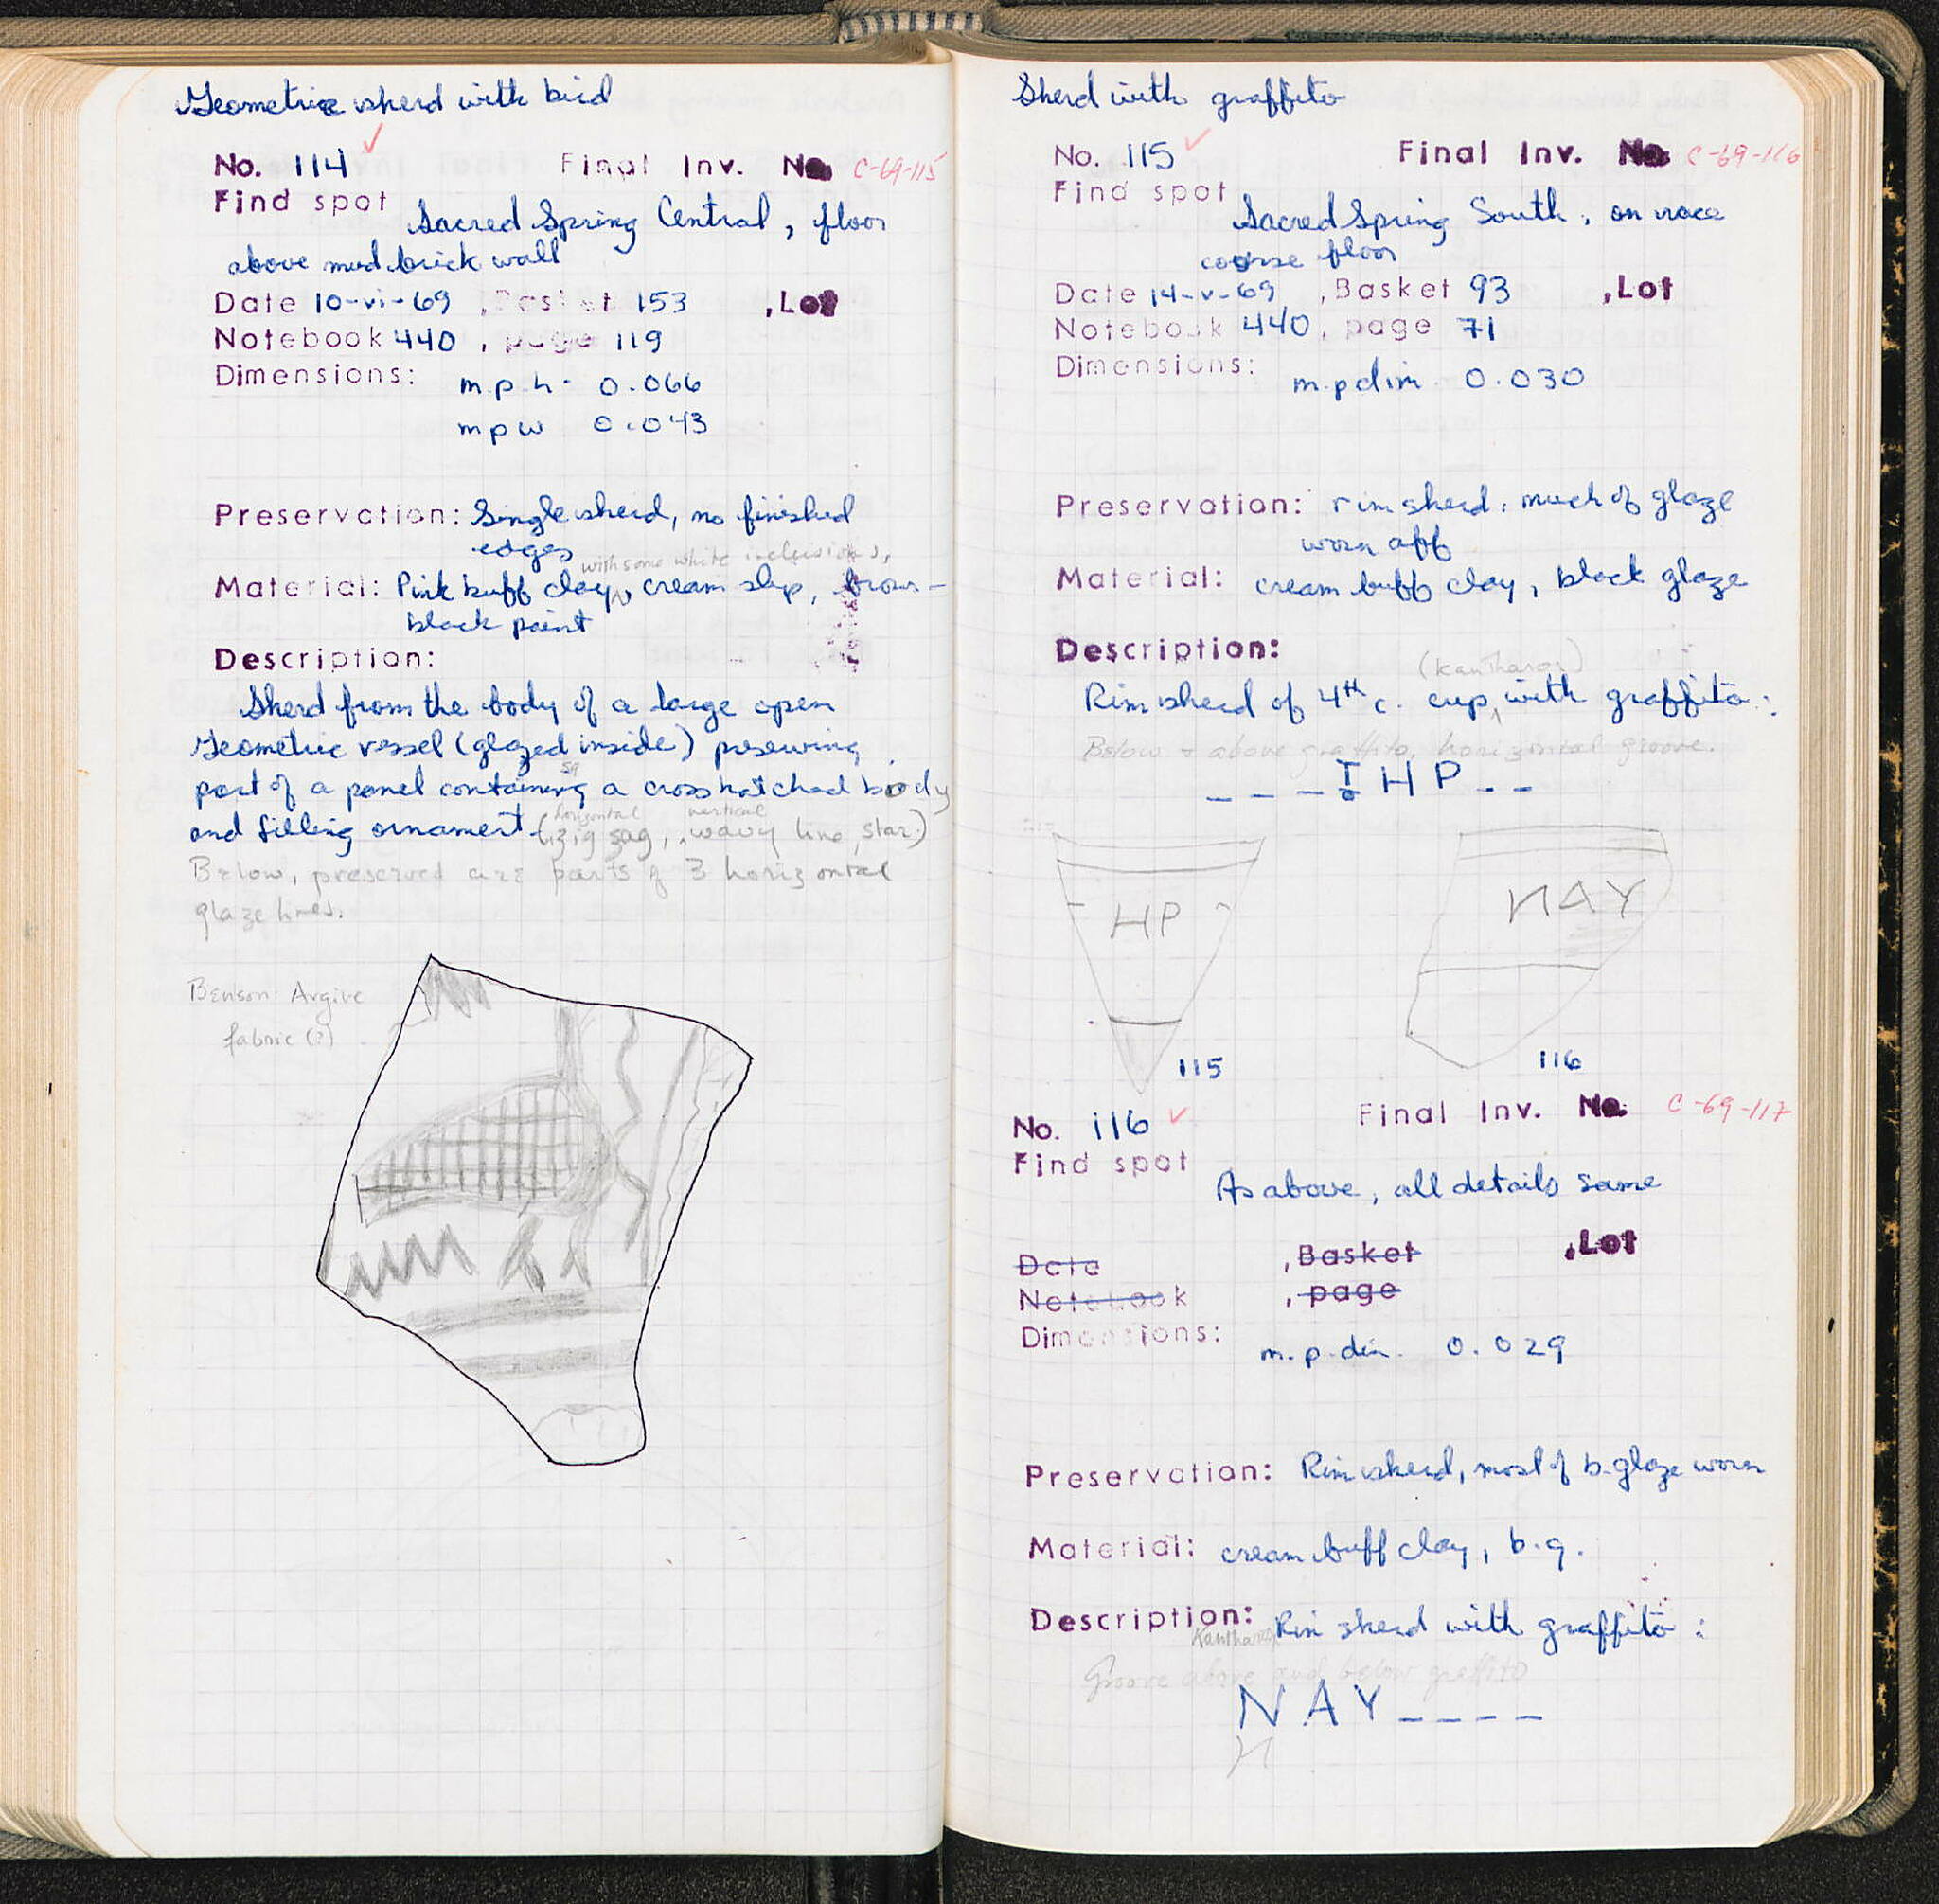 Geometric sherd with bird
No. 114 ✓ Final Inv. No C-69-115
Find spot Sacred Spring Central, floor
above mud brick wall
Date 10-vi-69 , Basket 153 , Lot
Notebook 440 , page 119
Dimensions: m p h - 0.066
m p w 0.043
Preservation: Single sherd, no finished
edges
with some white inclusions,
Material: Pink buff clay, cream slip, brown-
black paint
Description:
Sherd from the body of a large open
Geometric vessel (glazed inside) preserving
part of a panel containing a cross hatched body
and filling ornament (horizontal zig zag, vertical wavy line, star.)
Below, preserved are parts of 3 horizontal
glaze lines.
Benson: Argive
fabric (?)
Sherd with graffito
No. 115 ✓ Final Inv. No C-69-116
Find spot Sacred Spring South, on race
course floor
Date 14-v-69 , Basket 93 , Lot
Notebook 440 , page 71
Dimensions: m.p dim. 0.030
Preservation: rim sherd, much of glaze
worn off
Material: cream buff clay, black glaze
Description:
(kantharos)
Rim sherd of 4th c. cup, with graffito:
Below & above graffito, horizontal groove.
_ _ _ Ị H P _ _
HP
NAY
115
116
No. 116 ✓ Final Inv. No. C-69-117
Find spot As above, all details same
Date , Basket , Lot
Notebook , page
Dimensions: m. p. dim. 0.029
Preservation: Rim sherd, most of b. glaze worn
Material: cream buff clay, b.g.
Description: Rim sherd with graffito:
Kantharos
Groove above and below graffito
NAY _ _ _ _
И